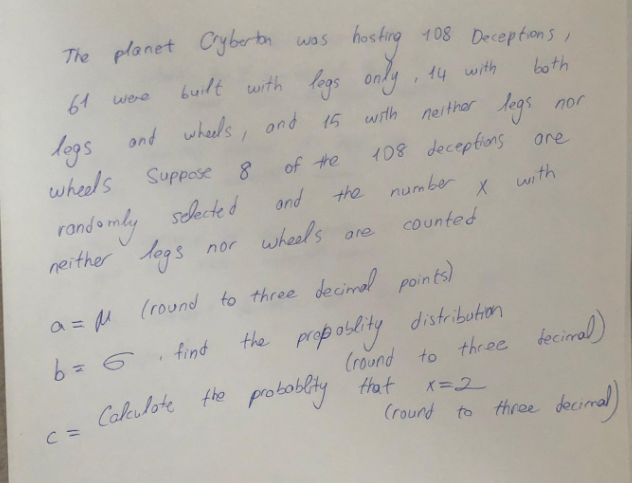 The planet Cryberton was hosting 108 Deceptions,
61 were built with legs only, 14 with both
legs and wheels, and 15 with neither legs nor
wheels Suppose 8 of the 108 deceptions are
randomly selected and the number x with
neither legs nor wheels are counted
a = μ (round to three decimal points)
b = σ, find the propoblity distribution
(round to three decimal)
c = Calculate the probablity that x=2
(round to three decimal)